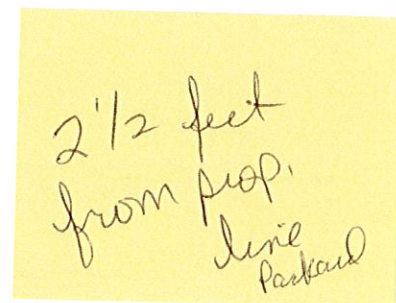 2 1/2 feet
from prop.
line
Packard